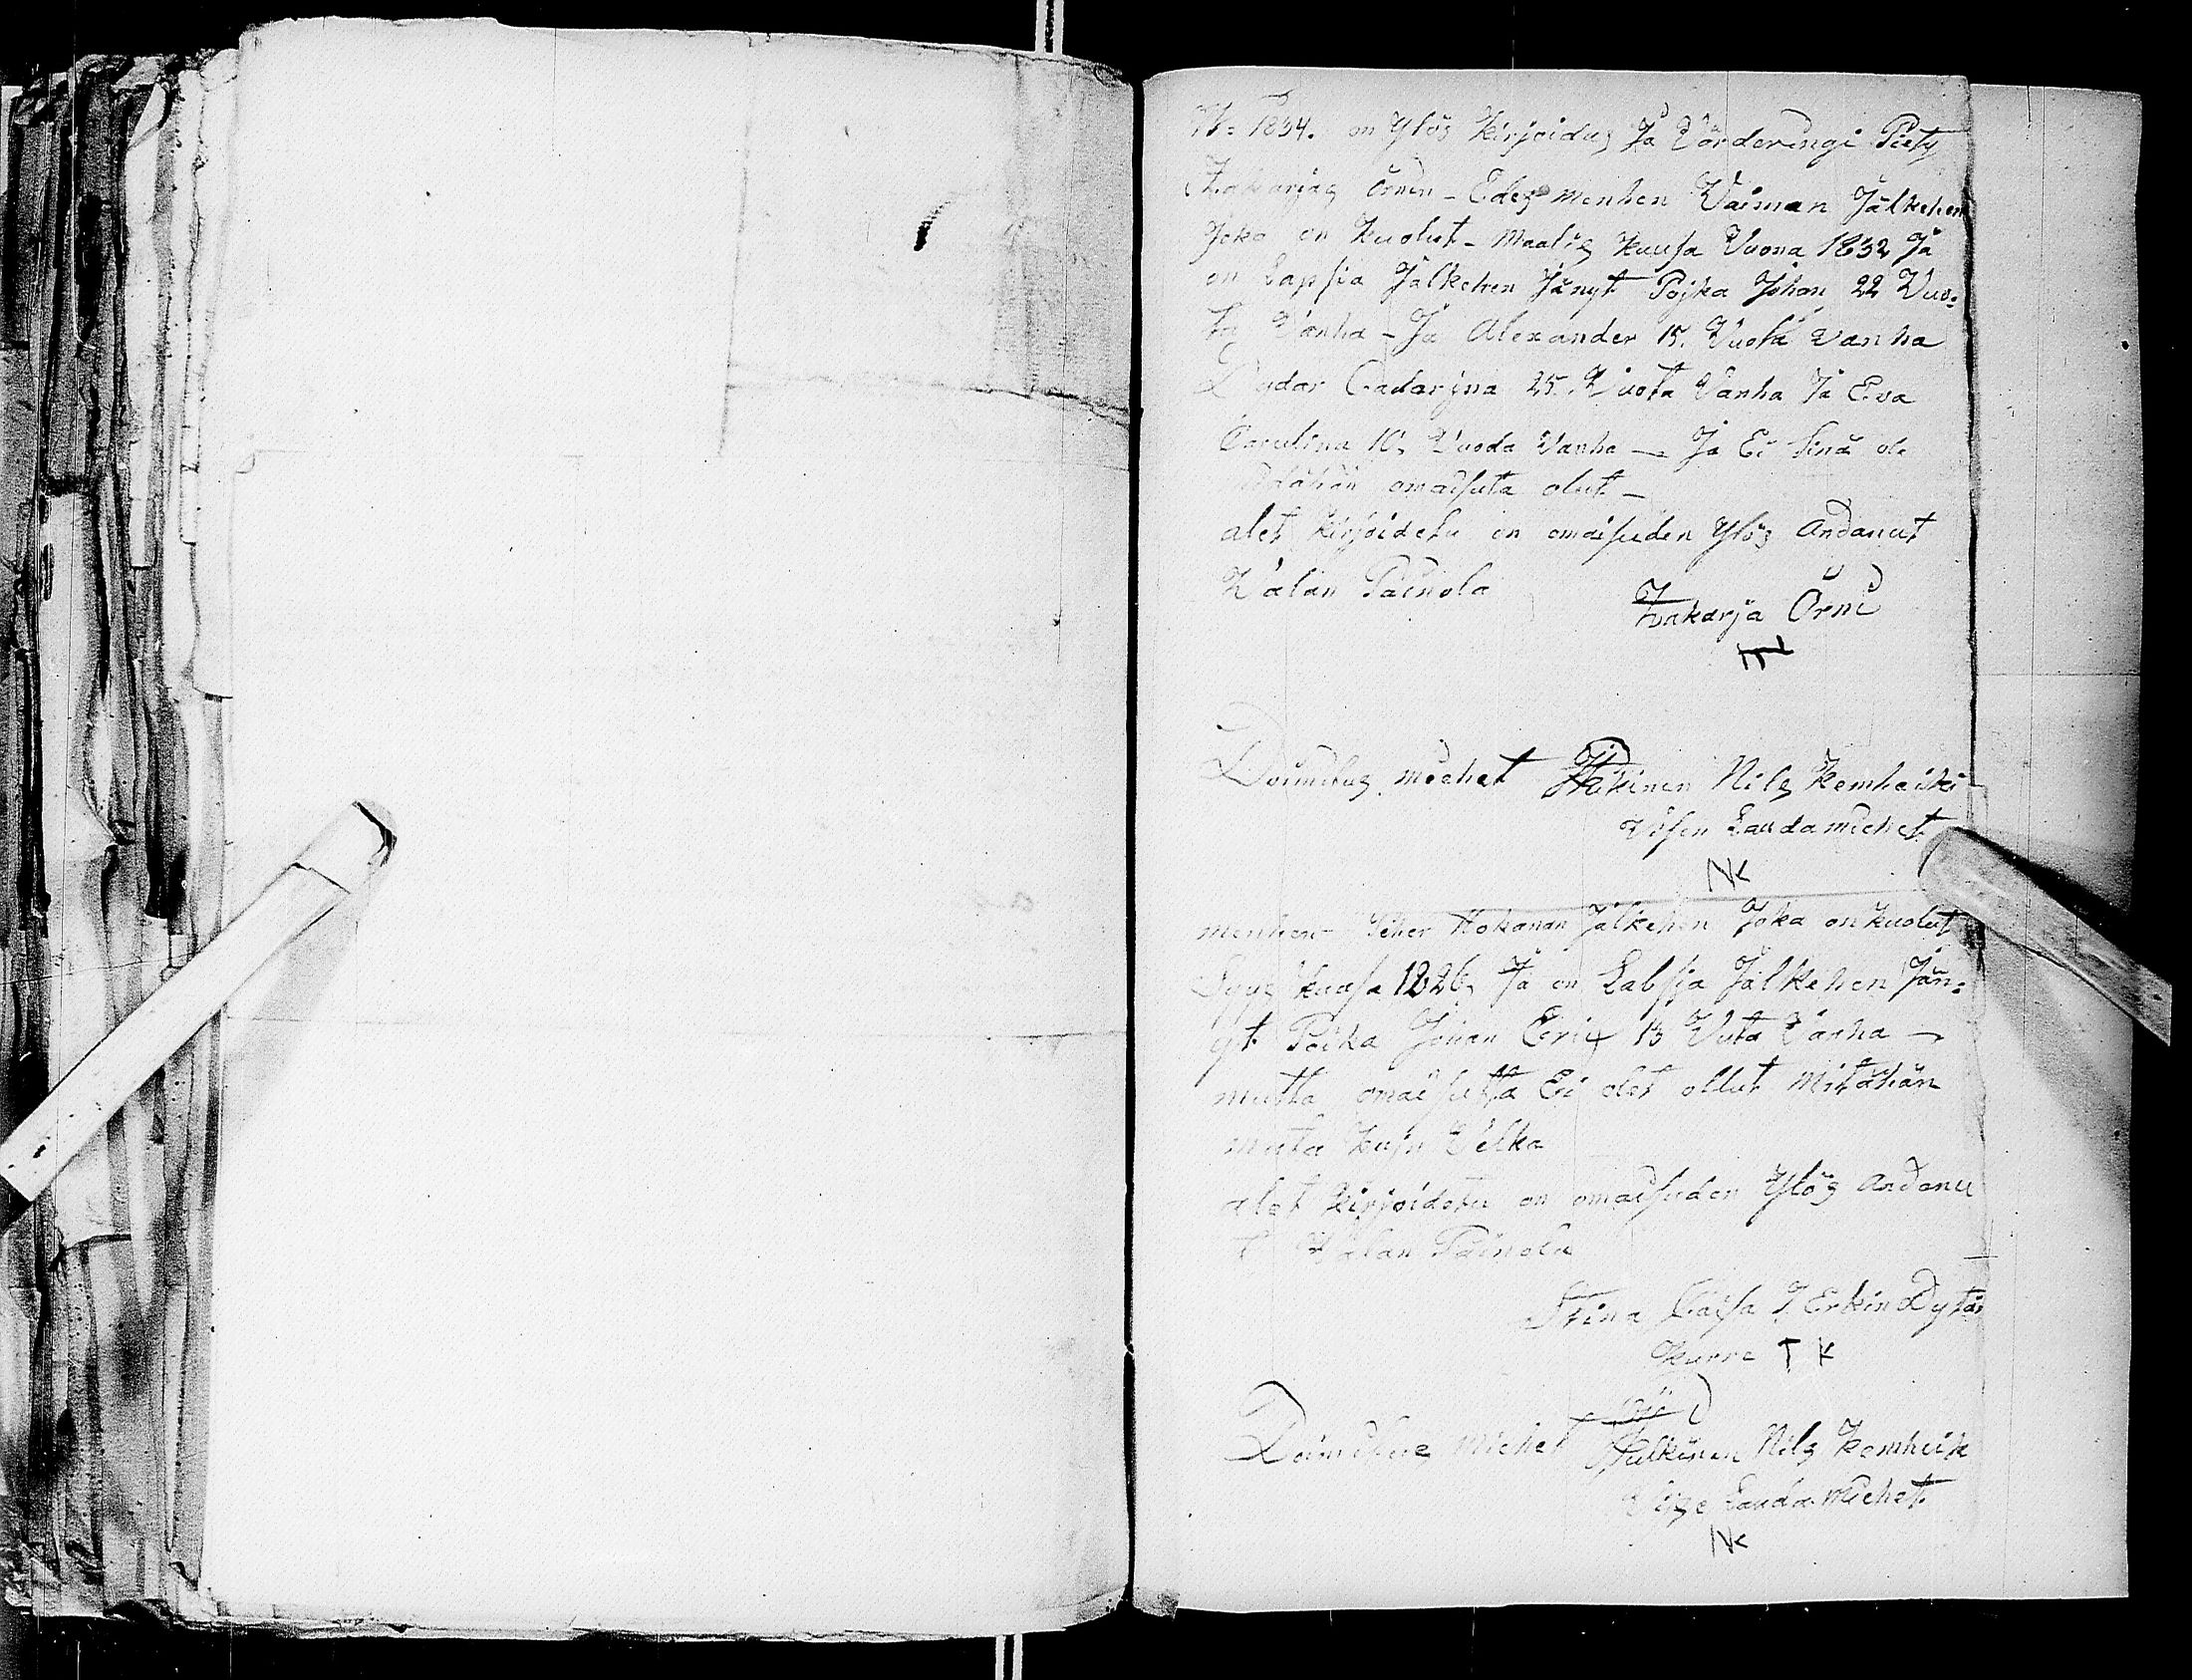 W: 1834. on Ylös Kirjoidus Ja Värderingi Piety
Zakarjas Örnin - Edes menhen Vaiman Jälkehen
Joka on Kuolut - Maalis Kuusa Vuona 1832 Ja
on Lapsia Jälkehen Jänyt Pojka Johan 22 Vuo:
ta Vanha - Ja Alexander 15. Vuota Vanha
Dydar Cadarjna 25. Vuota Vanha Ja Eva
Carulina 10, Vuoda Vanha - Ja Ei Sinä ole
omaisuta olut -
alet kirjoidetu on omaisuden Ylös andanut
Valan Painola
Zakarja Örni
Doimitus miehet Heikinen Nils Kemheiki
Visen Laudamiehet
NK
menhen Iŝher Hokanan Jälkehen Joka on kuolut
Syys kuusa 1826, Ja on Labsia Jälkehen Jän:
yt Poika Johan Eric 13 Vuta Vanha -
mutta omaisutta Ei olet ollut Mitähän
muta kujn Velka
alet Kirjoidetu on omaisuden Ylös andanu
t Valan Painola
Stina Caisa J Erkin Dytär
Kurre T K
Doimitus Miehet Nils Kemheik
Lauda Miehet
NK